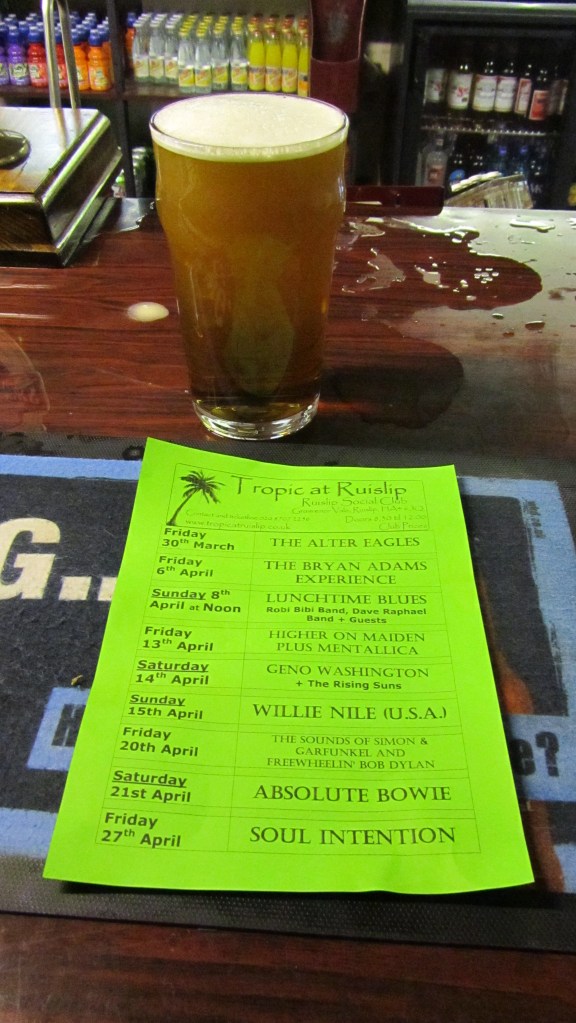 Tropic at Ruislip
Ruislip Social Club
Grosvenor Vale, Ruislip, HA4
www.tropicatruislip.co.uk
Doors 8.30 til 12.00
Friday
30th March
THE ALTER EAGLES
Friday
6th April
THE BRYAN ADAMS
EXPERIENCE
Sunday 8th
April at Noon
LUNCHTIME BLUES
Robi Bibi Band, Dave Raphael
Band + Guests
Friday
13th April
HIGHER ON MAIDEN
PLUS MENTALLICA
Saturday
14th April
GENO WASHINGTON
+ The Rising Suns
Sunday
15th April
WILLIE NILE (U.S.A.)
Friday
20th April
THE SOUNDS OF SIMON &
GARFUNKEL AND
FREEWHEELIN' BOB DYLAN
Saturday
21st April
ABSOLUTE BOWIE
Friday
27th April
SOUL INTENTION
G...
e?